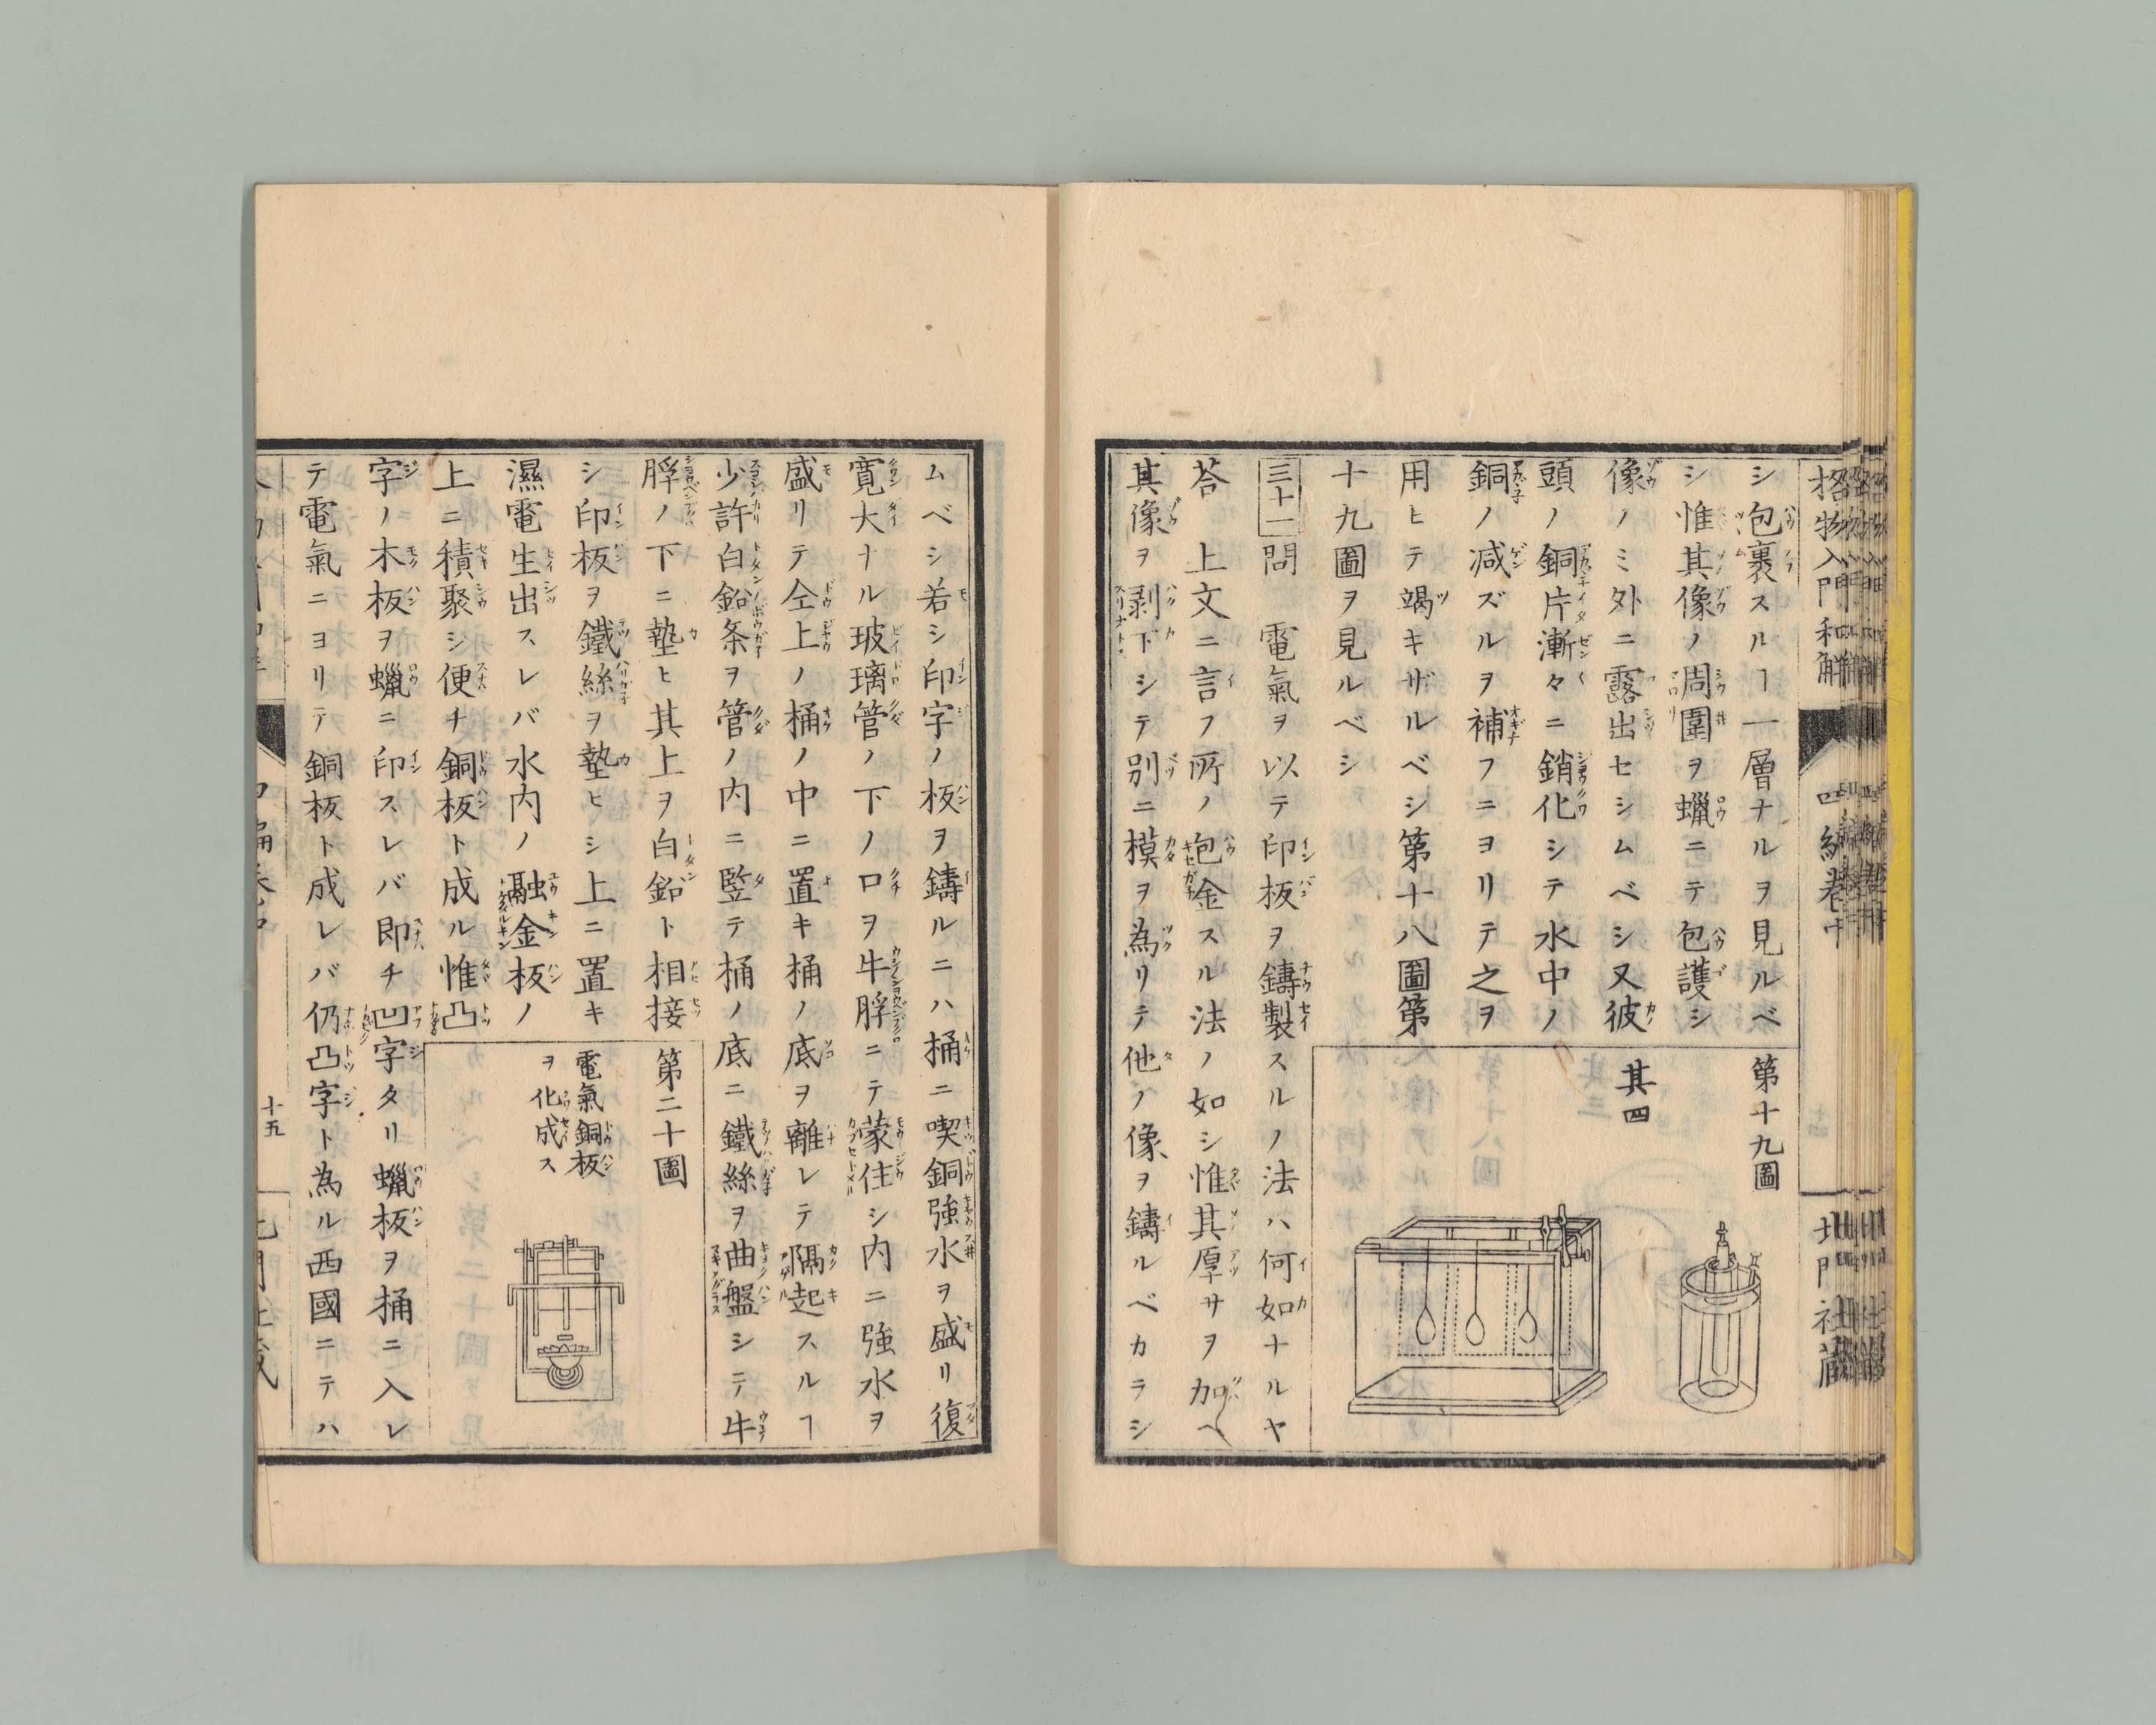 格物入門和解
北門社蔵
シ包裹スルヿ一層ナルヲ見ルベ
シ惟其像ノ周圍ヲ蠟ニテ包護シ
像ノミ外ニ露出セシムベシ又彼
頭ノ銅片漸々ニ銷化シテ水中ノ
銅ノ減ズルヲ補フニヨリテ之ヲ
用ヒテ竭キザルベシ第十八圖第
十九圖ヲ見ルベシ
第十九圖
其四
三十一問 電氣ヲ以テ印板ヲ鑄製スルノ法ハ何如ナルヤ
荅 上文ニ言フ所ノ包金スル法ノ如シ惟其厚サヲ加ヘ
其像ヲ剥下シテ別ニ模ヲ為リテ他ノ像ヲ鑄ルベカラシ
ムベシ若シ印字ノ板ヲ鑄ルニハ桶ニ喫銅強水ヲ盛リ復
寛大ナル玻璃管ノ下ノ口ヲ牛脬ニテ蒙住シ内ニ強水ヲ
盛リテ仝上ノ桶ノ中ニ置キ桶ノ底ヲ離レテ隔起スルヿ
少許白鉛条ヲ管ノ内ニ竪テ桶ノ底ニ鐵絲ヲ曲盤シテ牛
脬ノ下ニ墊ヒ其上ヲ白鉛ト相接
シ印板ヲ鐵絲ヲ墊ヒシ上ニ置キ
濕電生出スレバ水内ノ融金板ノ
上ニ積聚シ便チ銅板ト成ル惟凸
第二十圖
電氣銅板
ヲ化成ス
字ノ木板ヲ蠟ニ印スレバ即チ凹字タリ蠟板ヲ桶ニ入レ
テ電氣ニヨリテ銅板ト成レバ仍凸字ト為ル西國ニテハ
十五